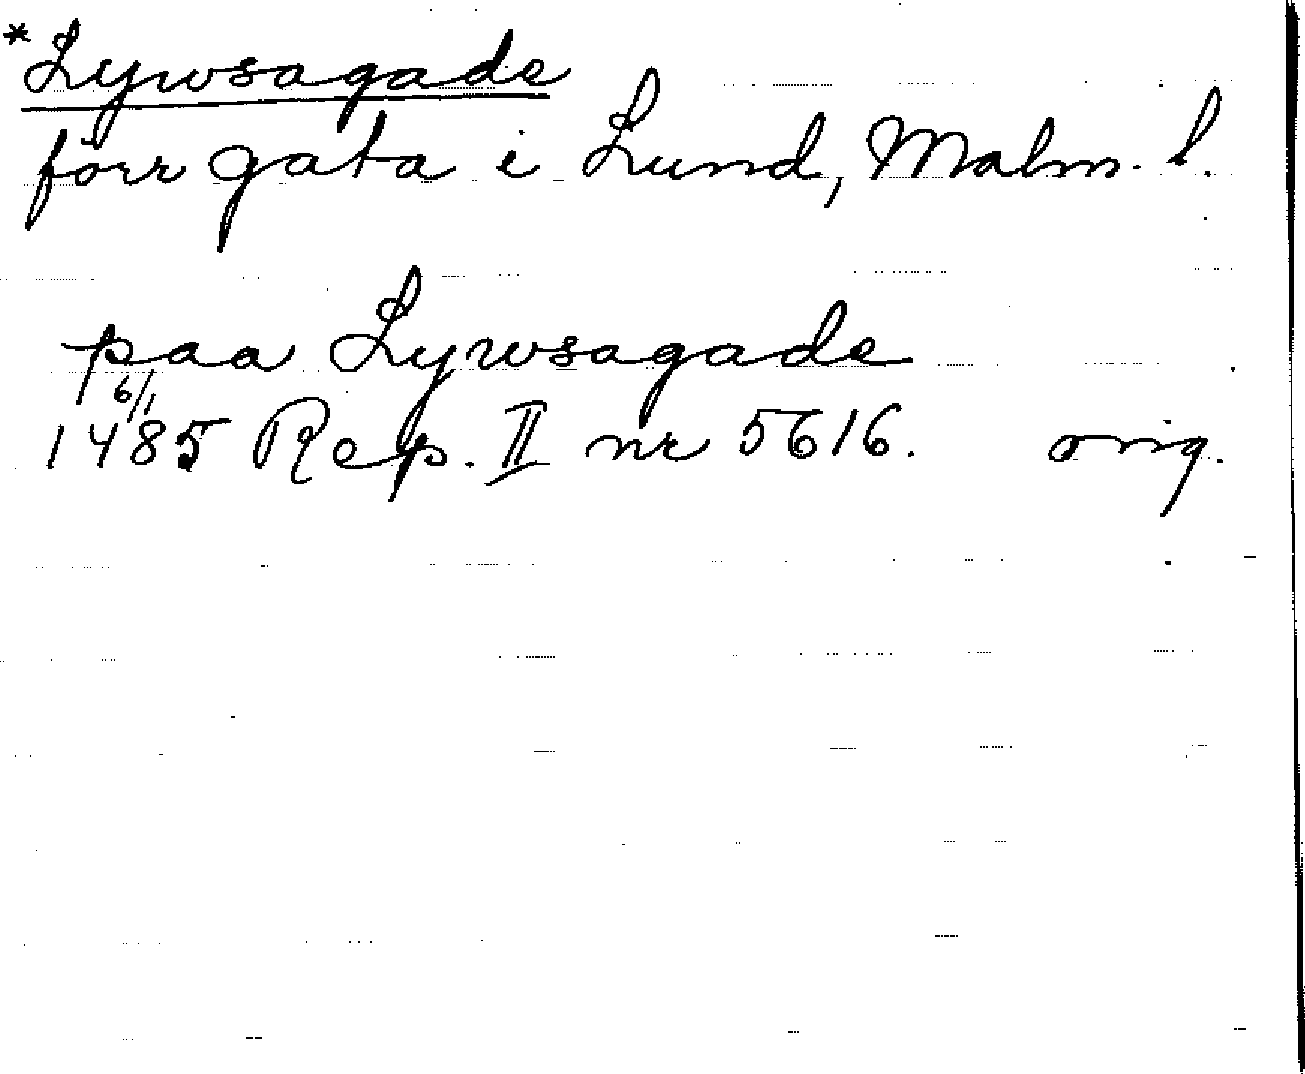 *Lywsagade
förr gata i Lund, Malm. l.
paa Lywsagade
6/1
1485 Rep. II nr 5616. orig.